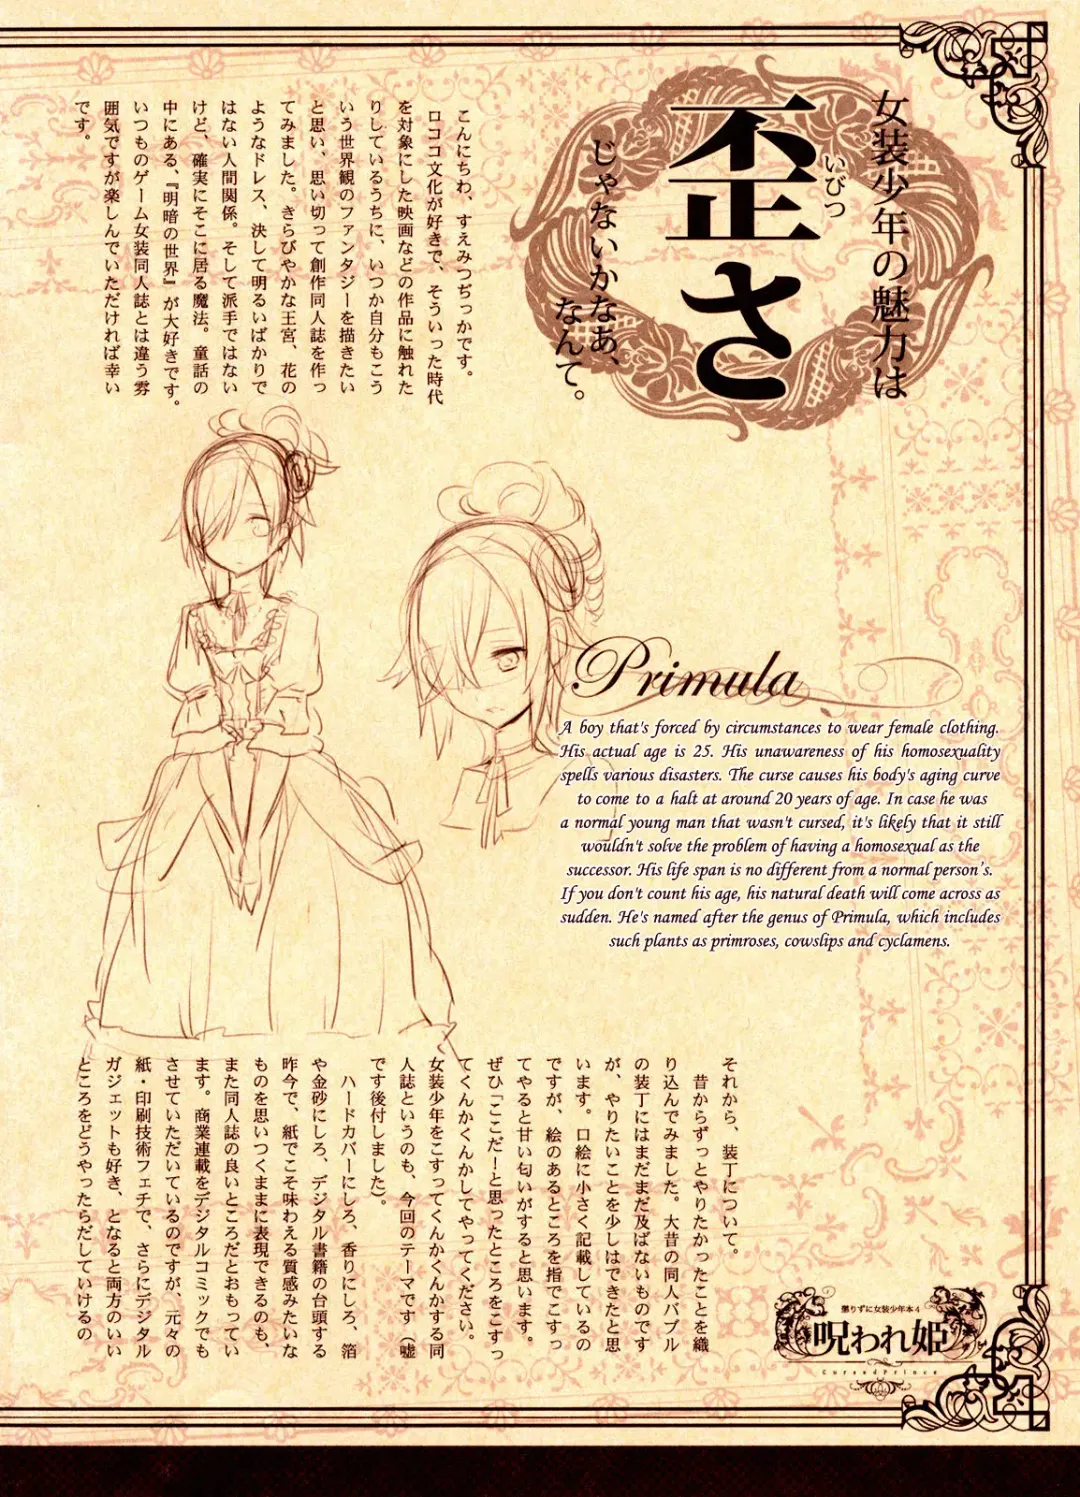 女装少年の魅力は
いびつ
歪さ
じゃないかなあ、
なんて。
こんにちわ、すえみつぢっかです。
ロココ文化が好きで、そういった時代
を対象にした映画などの作品に触れた
りしているうちに、いつか自分もこう
いう世界観のファンタジーを描きたい
と思い、思い切って創作同人誌を作っ
てみました。きらびやかな王宮、花の
ようなドレス、決して明るいばかりで
はない人間関係。そして派手ではない
けど、確実にそこに居る魔法。童話の
中にある、『明暗の世界』が大好きです。
いつものゲーム女装同人誌とは違う雰
囲気ですが楽しんでいただければ幸い
です。
Primula
A boy that's forced by circumstances to wear female clothing.
His actual age is 25. His unawareness of his homosexuality
spells various disasters. The curse causes his body's aging curve
to come to a halt at around 20 years of age. In case he was
a normal young man that wasn't cursed, it's likely that it still
wouldn't solve the problem of having a homosexual as the
successor. His life span is no different from a normal person's.
If you don't count his age, his natural death will come across as
sudden. He's named after the genus of Primula, which includes
such plants as primroses, cowslips and cyclamens.
それから、装丁について。
昔からずっとやりたかったことを織
り込んでみました。大昔の同人バブル
の装丁にはまだまだ及ばないものです
が、やりたいことを少しはできたと思
います。口絵に小さく記載しているの
ですが、絵のあるところを指でこすっ
てやると甘い匂いがすると思います。
ぜひ「ここだ！と思ったところをこすっ
てくんかくんかしてやってください。
女装少年をこすってくんかくんかする同
人誌というのも、今回のテーマです（嘘
です後付しました）。
ハードカバーにしろ、香りにしろ、箔
や金砂にしろ、デジタル書籍の台頭する
昨今で、紙でこそ味わえる質感みたいな
ものを思いつくままに表現できるのも、
また同人誌の良いところだとおもってい
ます。商業連載をデジタルコミックでも
させていただいているのですが、元々の
紙・印刷技術フェチで、さらにデジタル
ガジェットも好き、となると両方のいい
ところをどうやったらだしていけるの
懲りずに女装少年本4
呪われ姫
CursedPrince